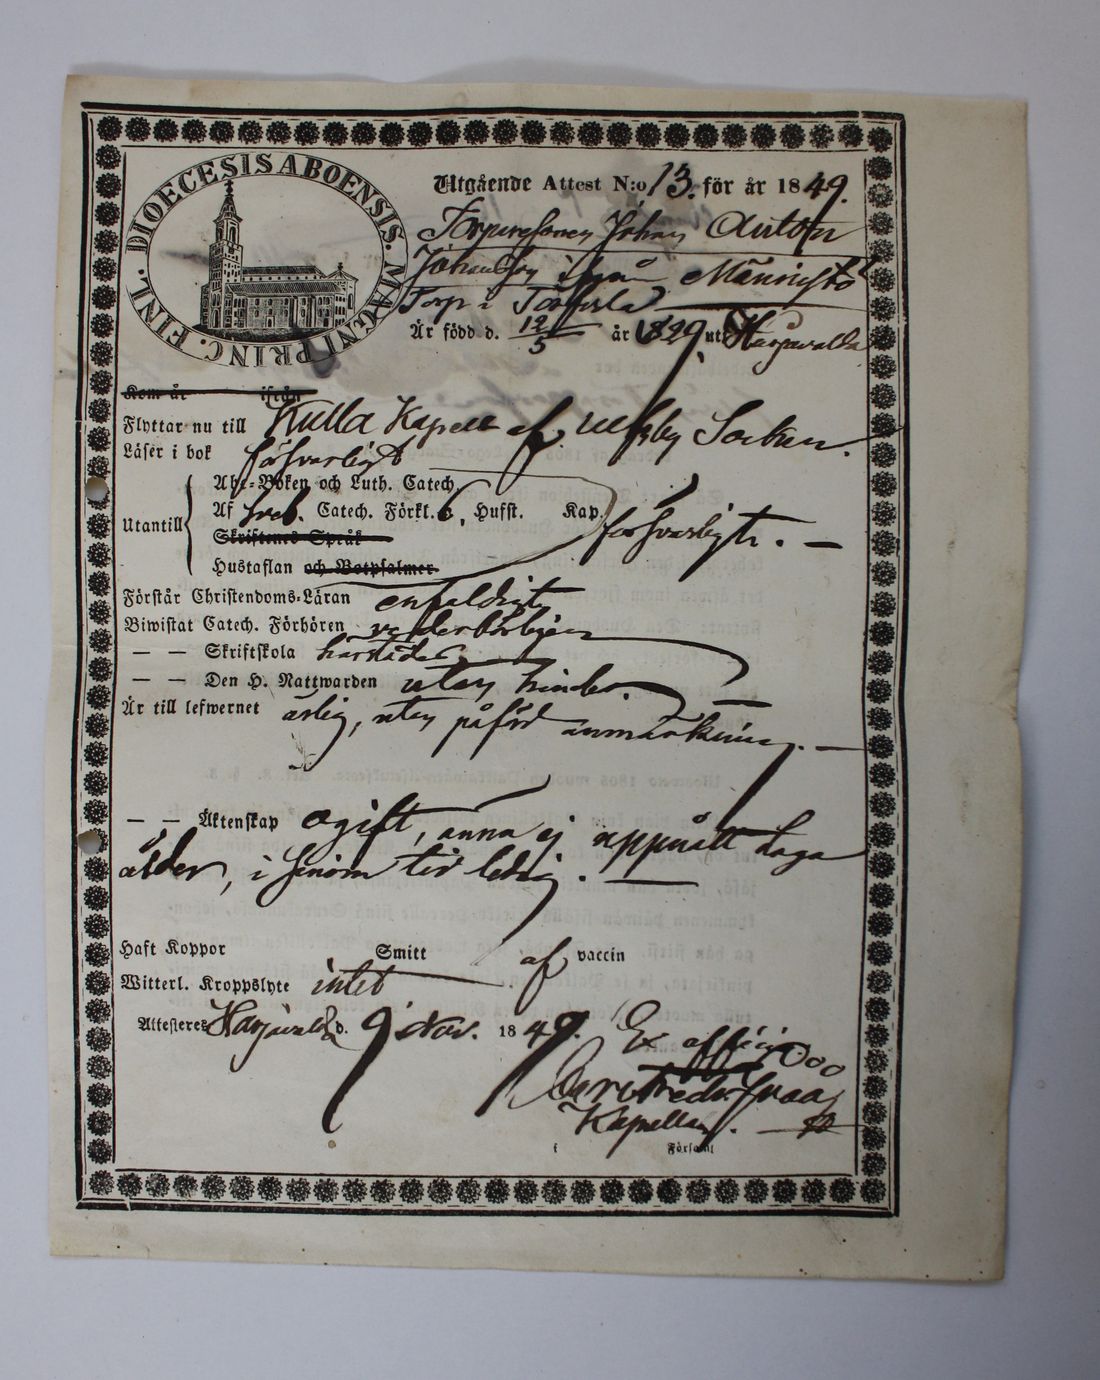 DIOECESIS ABOENSIS. MAGNI PRINC. FINL.
Utgående Attest N:o 13. för år 1849.
Torparesonen Johan Anton
Johansson ifrån Männistö
Torp i Torttila
Är född d. 12/5 år 1829 uti Harjavalda
Kom år ifrån
Flyttar nu till Kulla Kapell af Ulfsby Socken.
Läser i bok försvarligt
Abc-Boken och Luth. Catech.
Utantill Af sveb. Catech. Förkl. 6, Hufst. Kap. försvarligt. —
Skriftenes Språk
Hustaflan och Botpsalmer
Förstår Christendoms-Läran enfaldigt
Biwistat Catech. Förhören vederbörligen
— — Skriftskola härstädes
— — Den H. Nattwarden utan hinder. —
Är till lefwernet ärlig, utan påförd anmärkning. —
— — Äktenskap ogift, ännu ej uppnått laga
ålder, i sinom tid ledig. —
Haft Koppor Smitt af vaccin
Witterl. Kroppslyte intet
Attesteres Harjavalda d. 9 Nov. 1849. Ex officio
Kapellan. —
i Församl